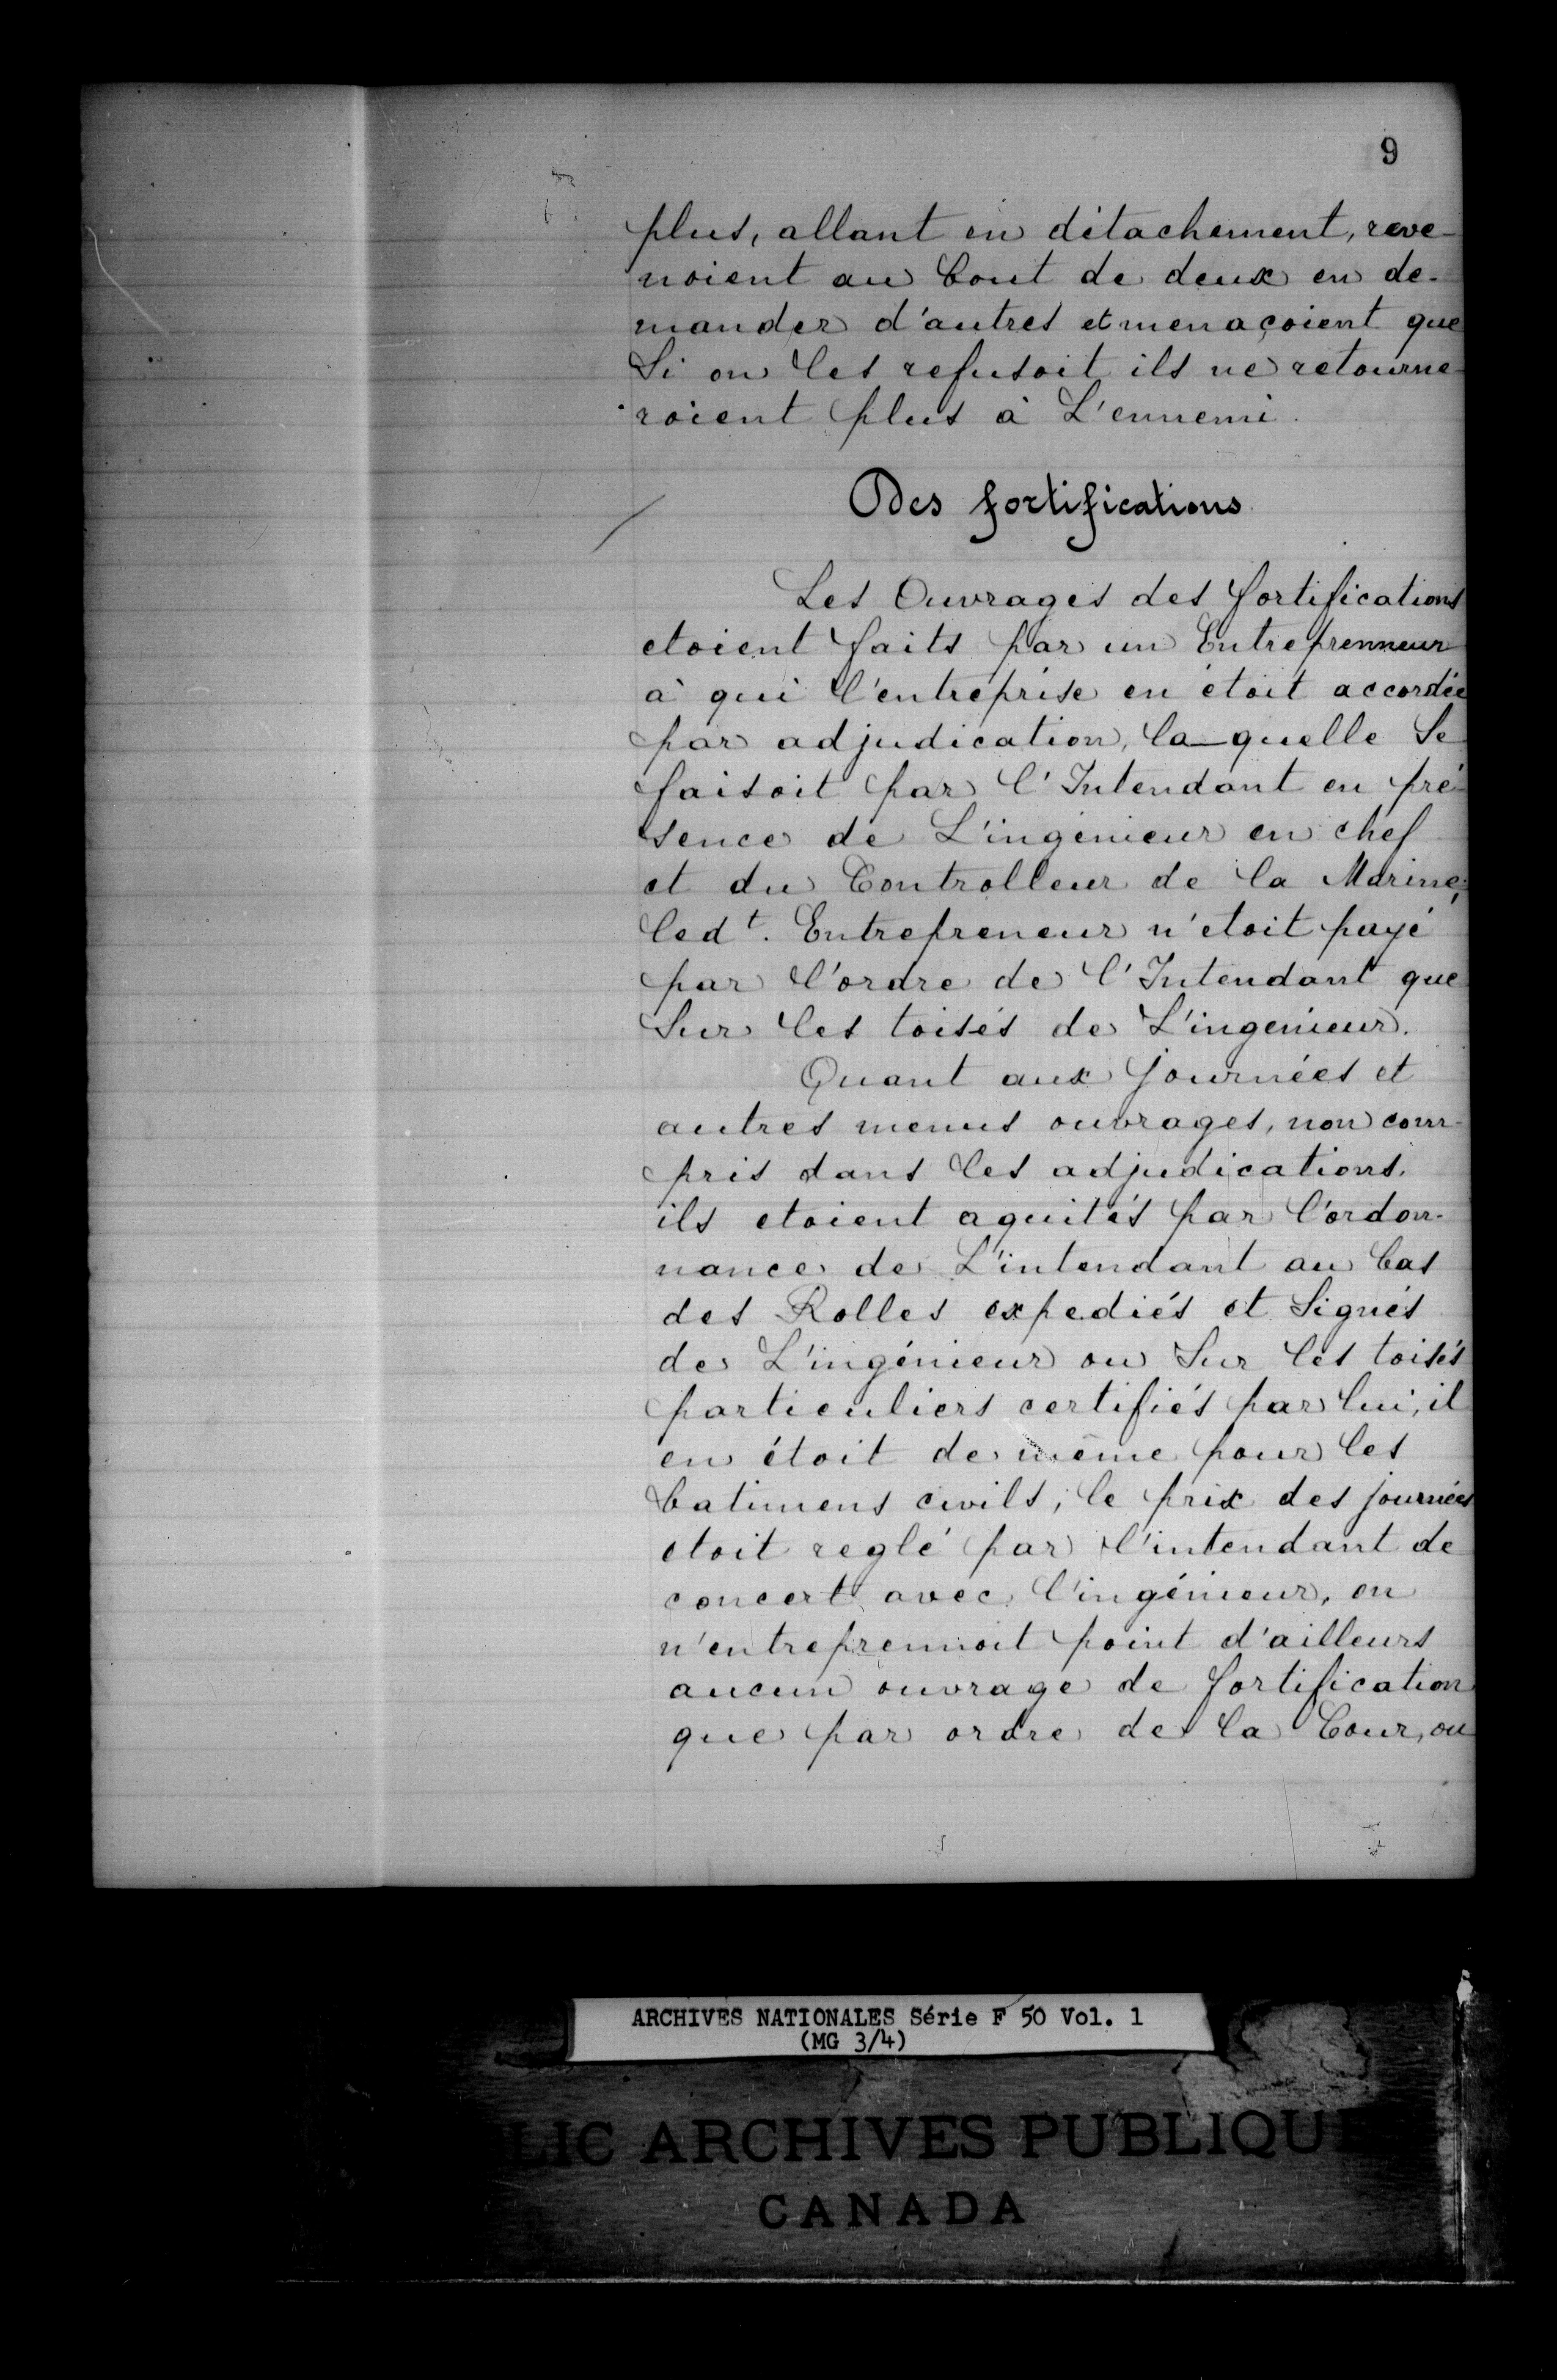 9
plus, allant en détachement, reve-
noient au bout de deux en de-
mander d'autres et menaçoient que
Si on les refusoit ils ne retourne-
roient plus à L'ennemi.
Des fortifications
Les Ouvrages des fortifications
etoient faits par un Entreprenneur
à qui l'entreprise en étoit accordée
par adjudication, la-quelle Se
faisoit par l'Intendant en pré-
sence de L'ingénieur en chef
et du Controlleur de la Marine;
led t. Entrepreneur n'etoit payé
par l'ordre de l'Intendant que
Sur les toisés de L'ingenieur.
Quant aux journées et
autres menus ouvrages, non com-
pris dans les adjudications.
ils etoient aquités par l'ordon-
nance de L'intendant au bas
des Rolles expediés et Signés
de L'ingénieur ou Sur les toisés
particuliers certifiés par lui; il
en étoit de même pour les
batimens civils; le prix des journées
etoit reglé par l'intendant de
concert avec l'ingénieur, on
n'entreprennoit point d'ailleurs
aucun ouvrage de fortification
que par ordre de la Cour, ou
ARCHIVES NATIONALES Série F 50 Vol. 1
(MG 3/4)
LIC ARCHIVES PUBLIQUE
CANADA